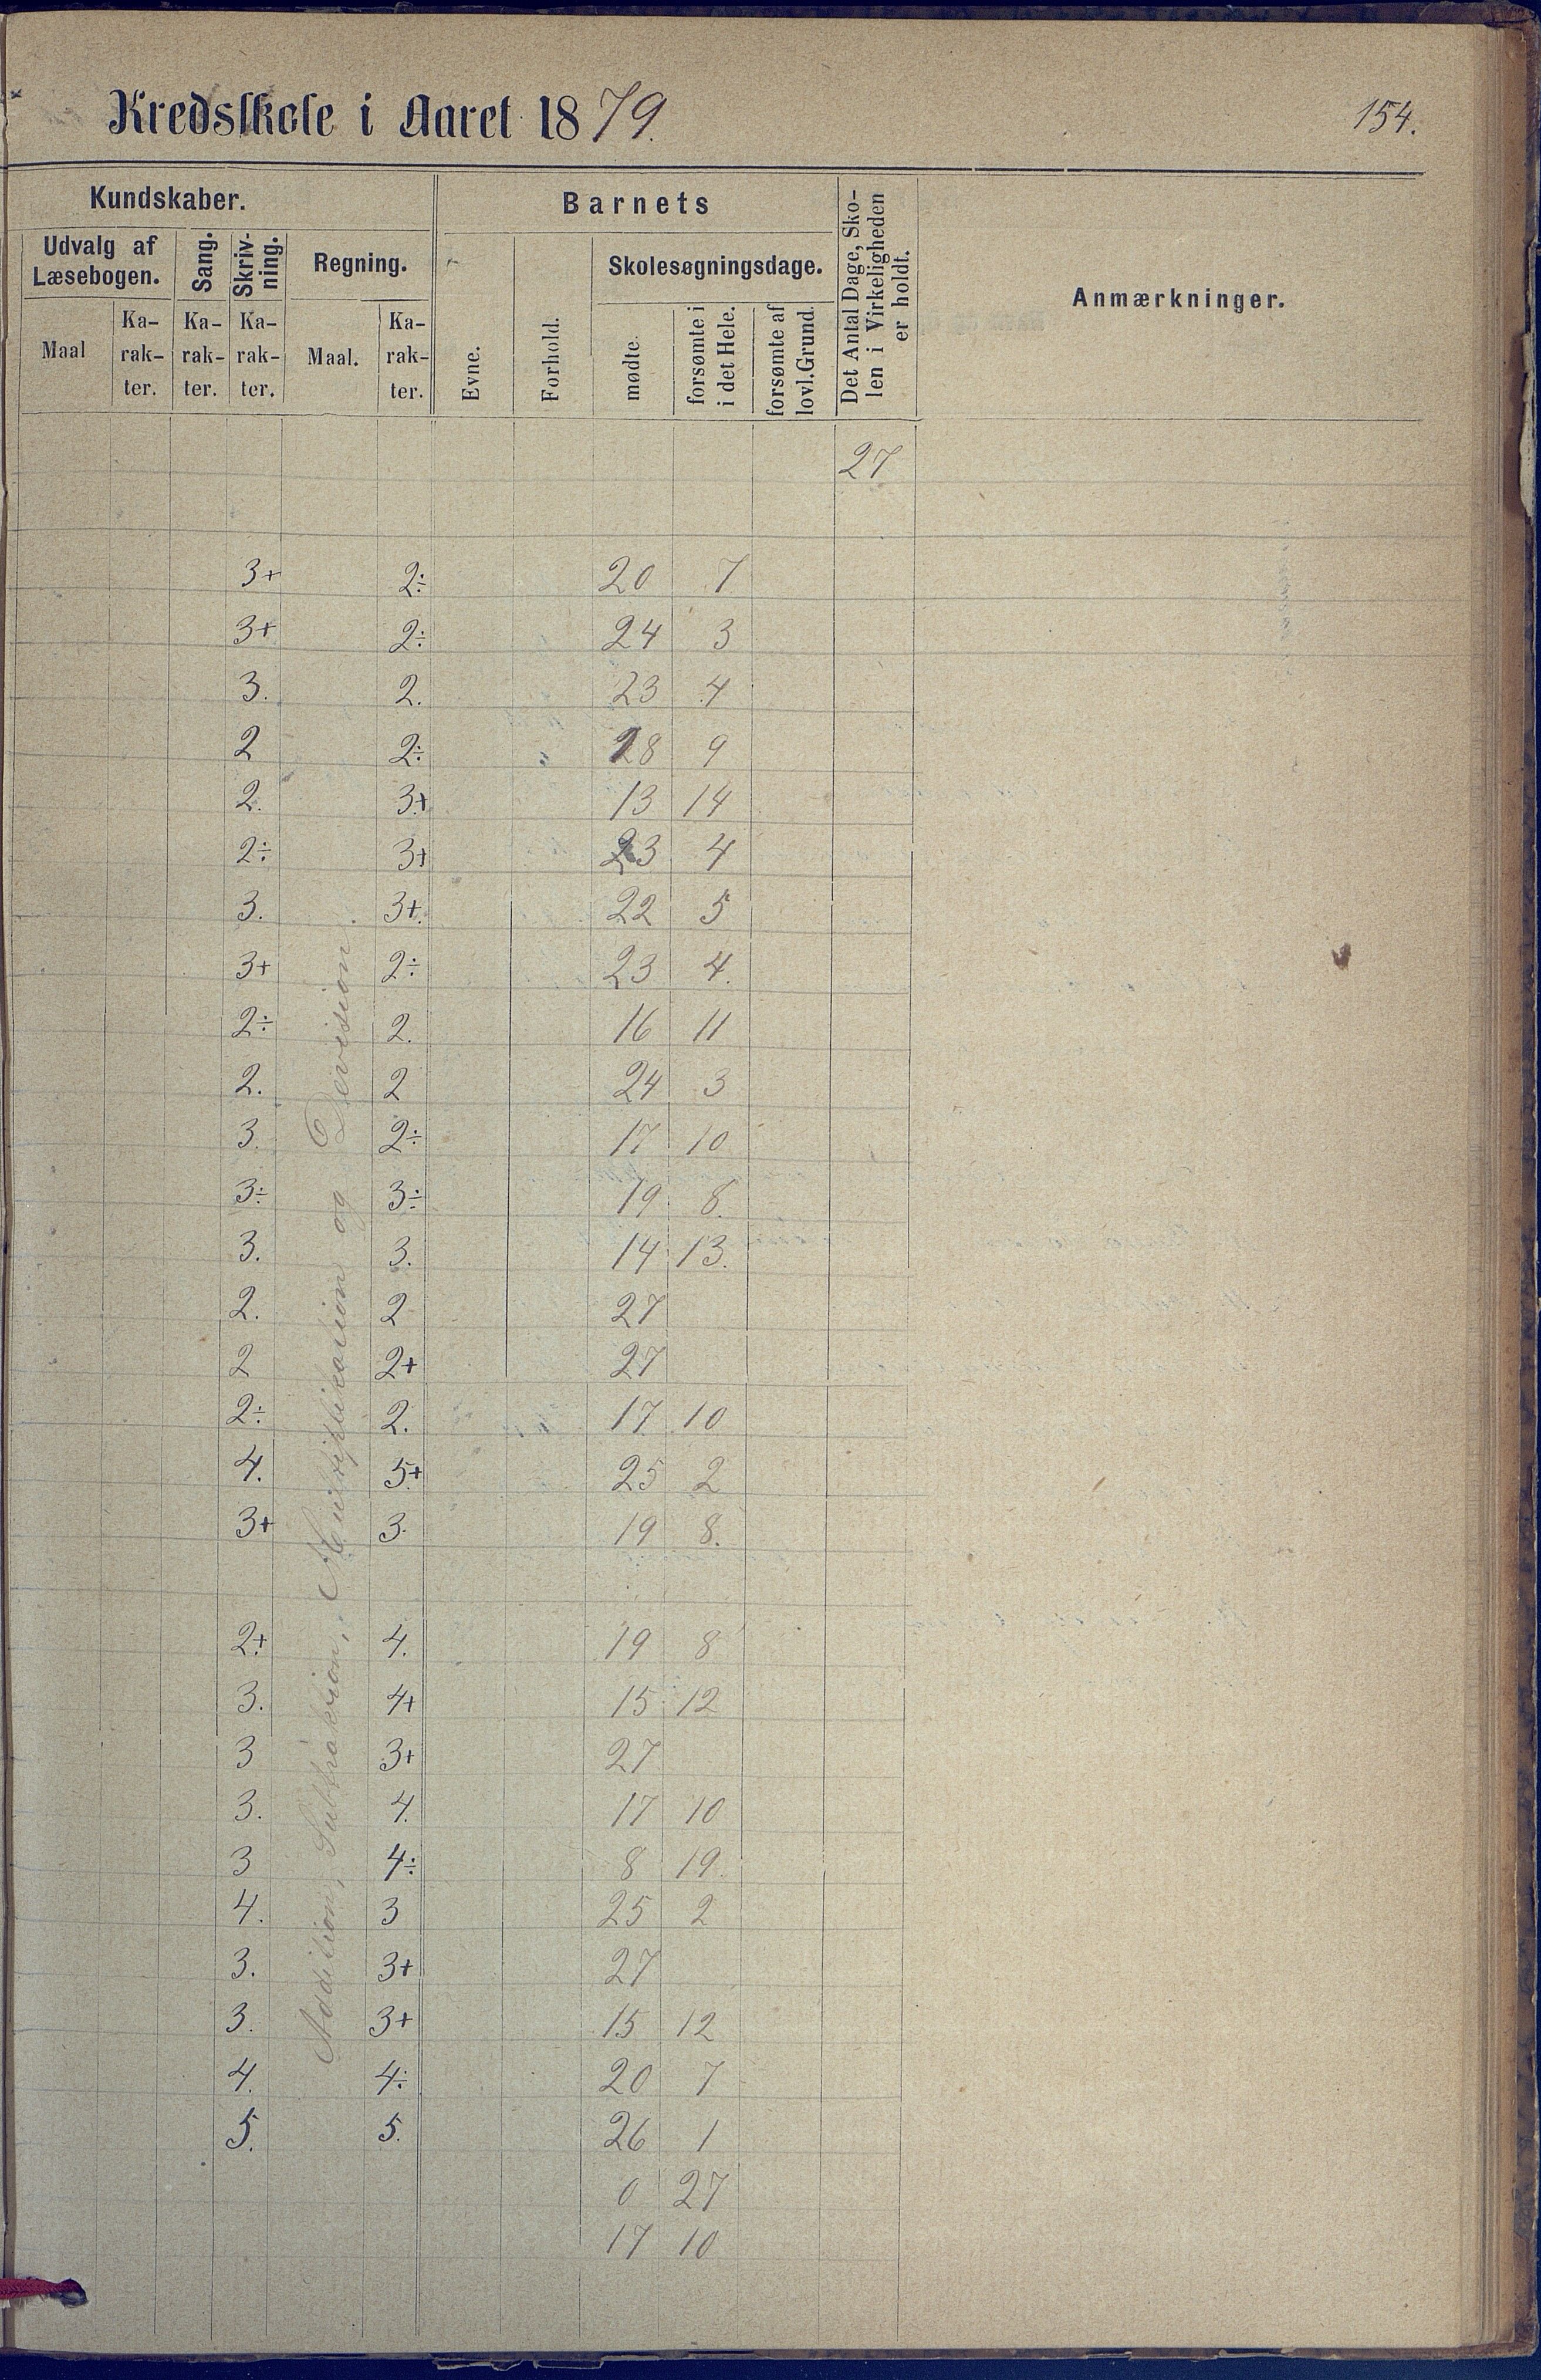 Kredsskole i Aaret 1879. 154.
Kundskaber. Barnets Det Antal Dage, Sko-
len i Virkeligheden
er holdt. Anmærkninger.
Udvalg af
Læsebogen. Sang. Skriv-
ning. Regning. Evne. Forhold. Skolesøgningsdage.
Maal Ka-
rak-
ter. Ka-
rak-
ter. Ka-
rak-
ter. Maal. Ka-
rak-
ter. mødte. forsømte i
i det Hele. forsømte af
lovl. Grund.
27
3+ 2÷ 20 7
3+ 2÷ 24 3
3. 2. 23 4
2 2÷ 18 9
2. 3+ 13 14
2÷ 3+ 23 4
3. 3+. 22 5
3+ 2÷ 23 4.
2÷ 2. 16 11
2. 2 24 3
3. 2÷ 17 10
3÷ 3÷ 19 8.
3. 3. 14 13.
2. 2 27
2 2+ 27
2÷ 2. 17 10
4. 5+ 25 2
3+ 3. 19 8.
2+ 4. 19 8
3. 4+ 15 12
3 3+ 27
3. 4. 17 10
3 4÷ 8 19.
4. 3 25 2
3. 3+ 27
3. 3+ 15 12
4. 4÷ 20 7
5. 5. 26 1
0 27
17 10
Addition, Subtraktion, Multiplikation og Devision.